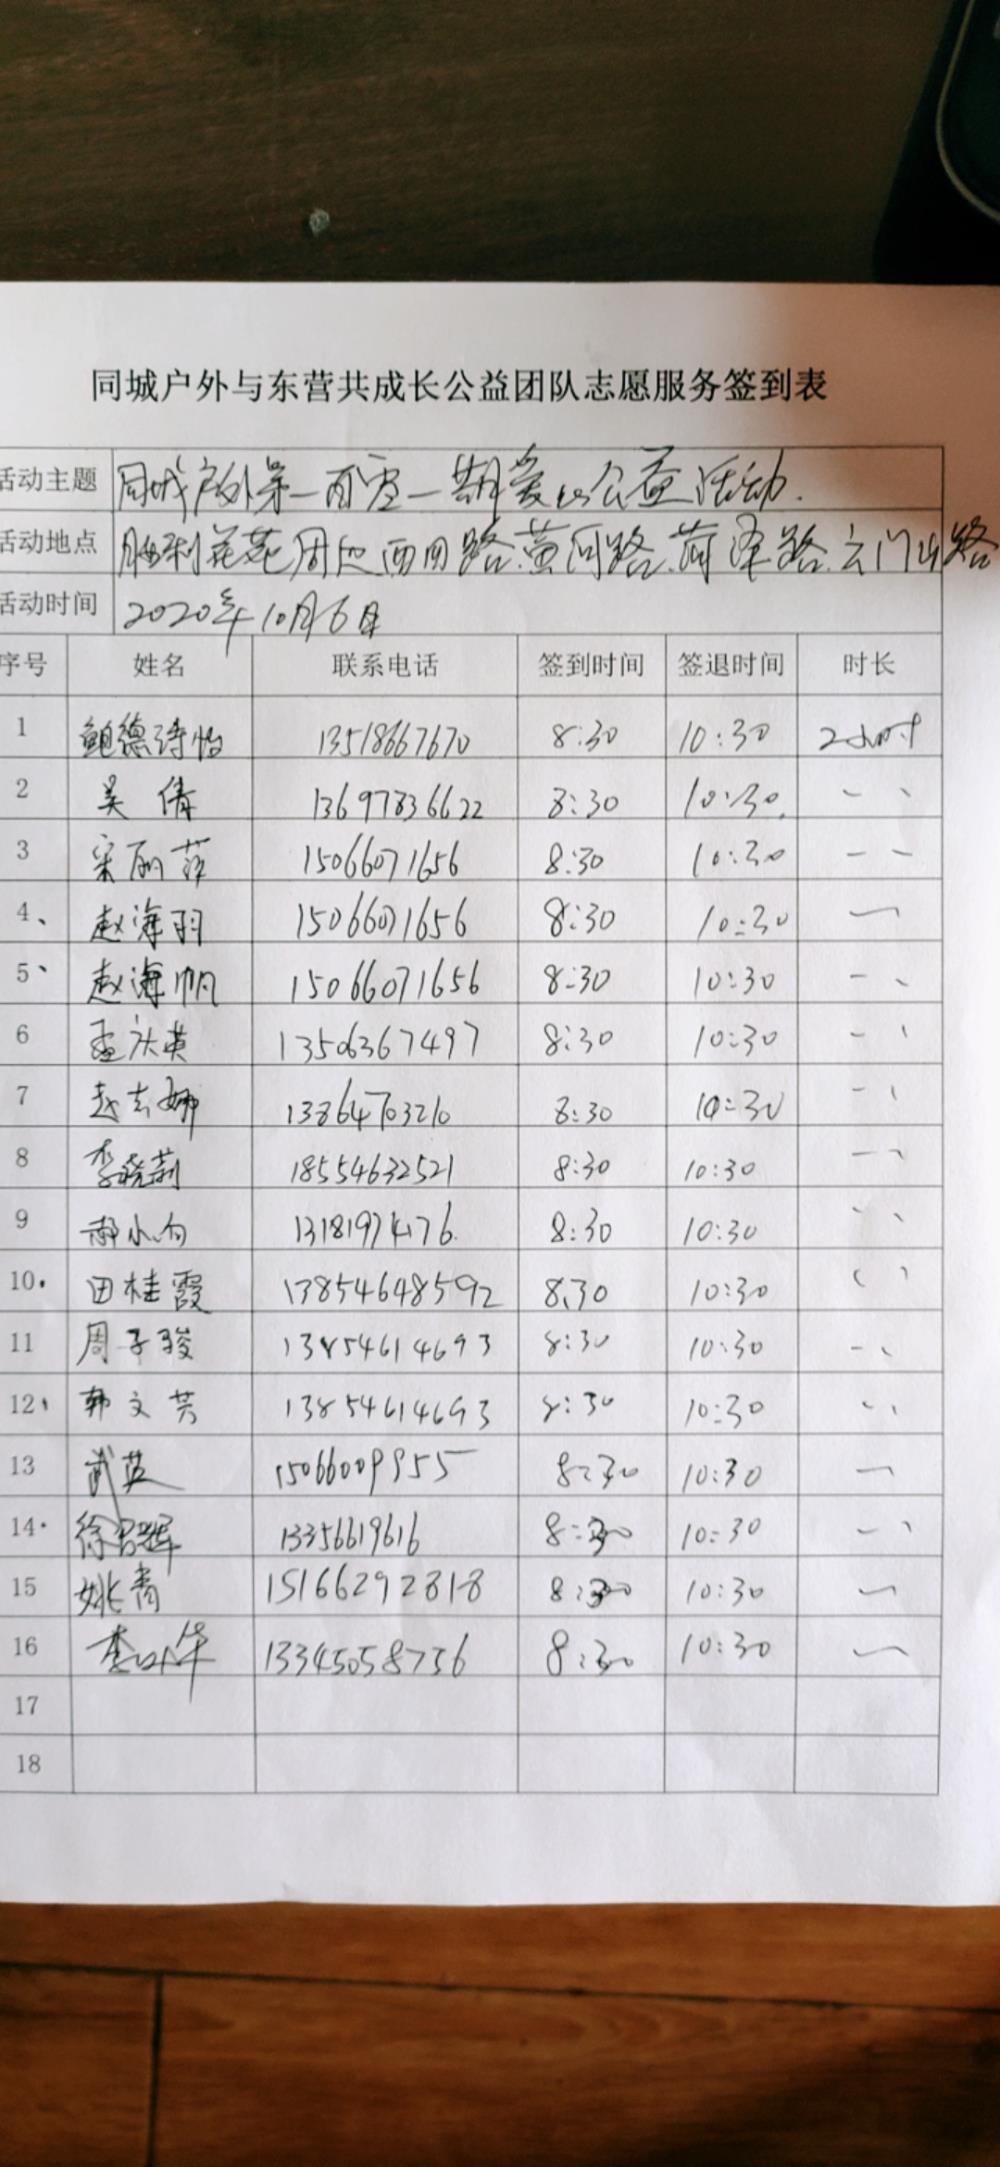 同城户外与东营共成长公益团队志愿服务签到表
活动主题 同城户外第一百零一期爱心公益活动.
活动地点 胜利花苑周边西四路、黄河路、菏泽路、云门山路
活动时间 2020年10月6日
序号 姓名 联系电话 签到时间 签退时间 时长
1 鲍德诗怡 13518667670 8:30 10:30 2小时
2 吴倩 13697836622 8:30 10:30
3 宋丽萍 15066071656 8:30 10:30
4、 赵海羽 15066071656 8:30 10:30
5、 赵海帆 15066071656 8:30 10:30
6 孟庆英 13506367497 8:30 10:30
7 赵志娜 13864703210 8:30 10:30
8 李晓莉 18554632521 8:30 10:30
9 郝小向 8:30 10:30
10. 田桂霞 13854648592 8:30 10:30
11 周子骏 13854614693 8:30 10:30
12、 韩文芳 13854614693 8:30 10:30
13 武英 15066009955 8:30 10:30
14. 徐召辉 13356619616 8:30 10:30
15 姚青 15166292818 8:30 10:30
16 李 华 13345058756 8:30 10:30
17
18